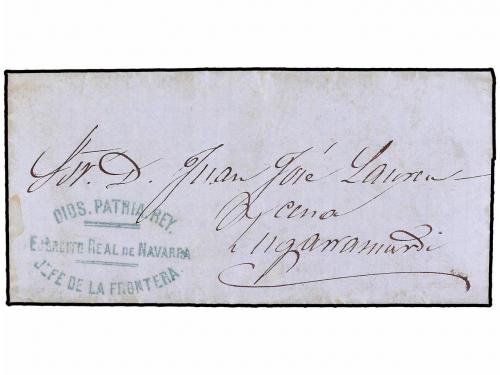 Sor. D. Juan José Laurcu-
cena
Zugarramurdi
DIOS. PATRIA. REY.
EJERCITO REAL DE NAVARRA
JEFE DE LA FRONTERA.